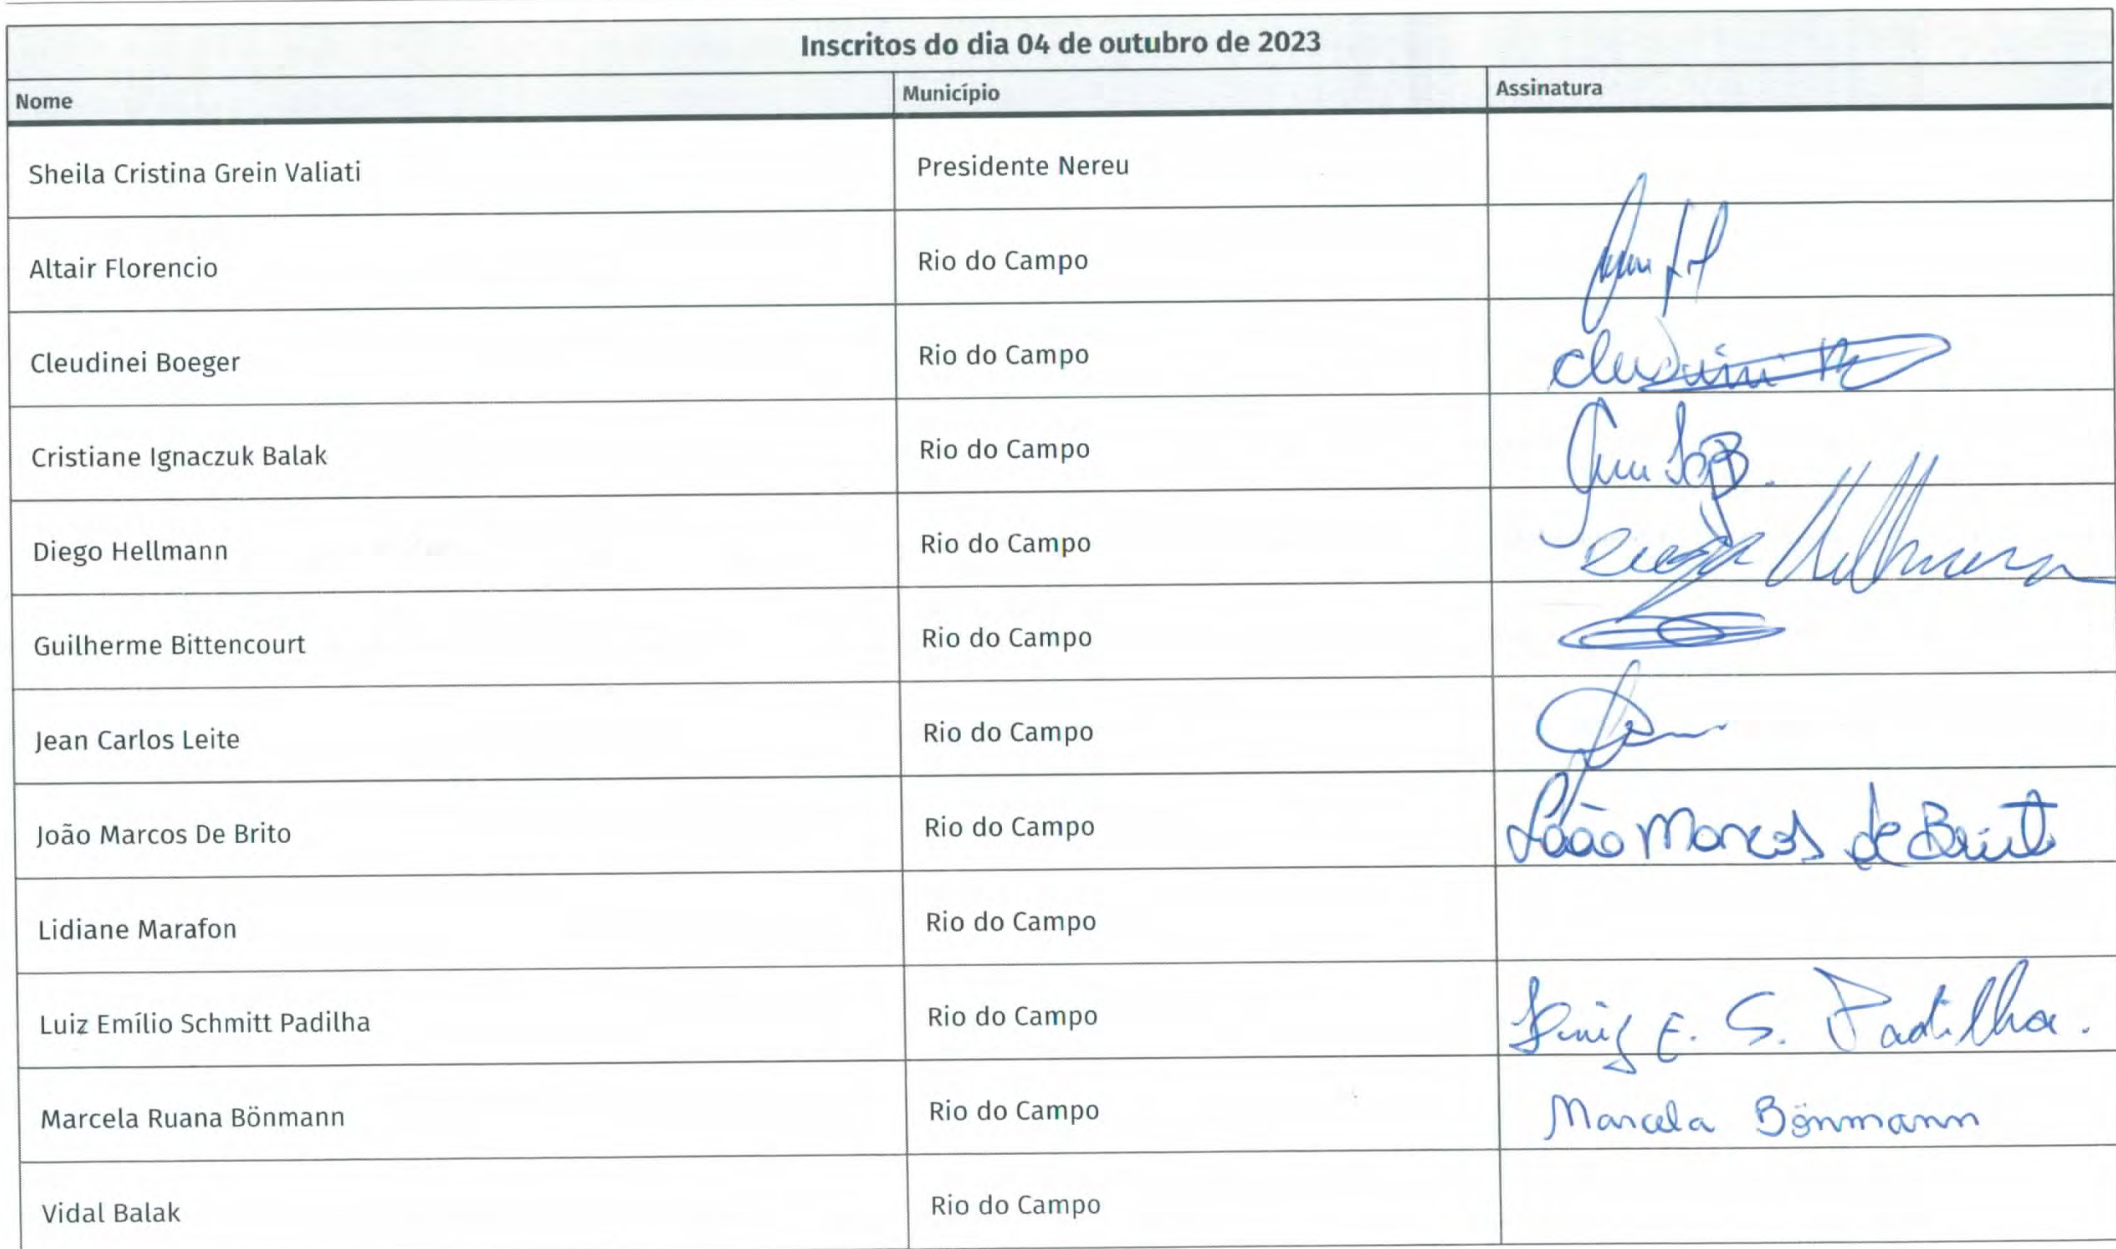 Inscritos do dia 04 de outubro de 2023
Nome Município Assinatura
Sheila Cristina Grein Valiati Presidente Nereu
Altair Florencio Rio do Campo
Cleudinei Boeger Rio do Campo
Cristiane Ignaczuk Balak Rio do Campo
Diego Hellmann Rio do Campo Diego Hellmann
Guilherme Bittencourt Rio do Campo
Jean Carlos Leite Rio do Campo
João Marcos De Brito Rio do Campo João Marcos de Brito
Lidiane Marafon Rio do Campo
Luiz Emílio Schmitt Padilha Rio do Campo Luiz E. S. Padilha.
Marcela Ruana Bönmann Rio do Campo Marcela Bönmann
Vidal Balak Rio do Campo